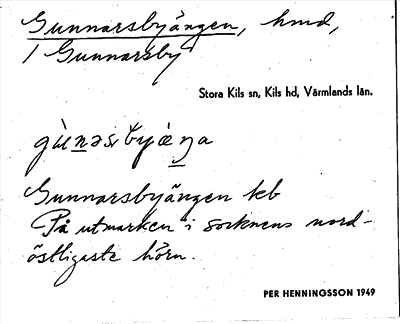 Gunnarsbyängen, hmd,
/ Gunnarsby
Stora Kils sn, Kils hd, Värmlands län.
Gunnarsbyängen keb
På utmarken i socknens nord-
östligaste hörn.
PER HENNINGSSON 1949